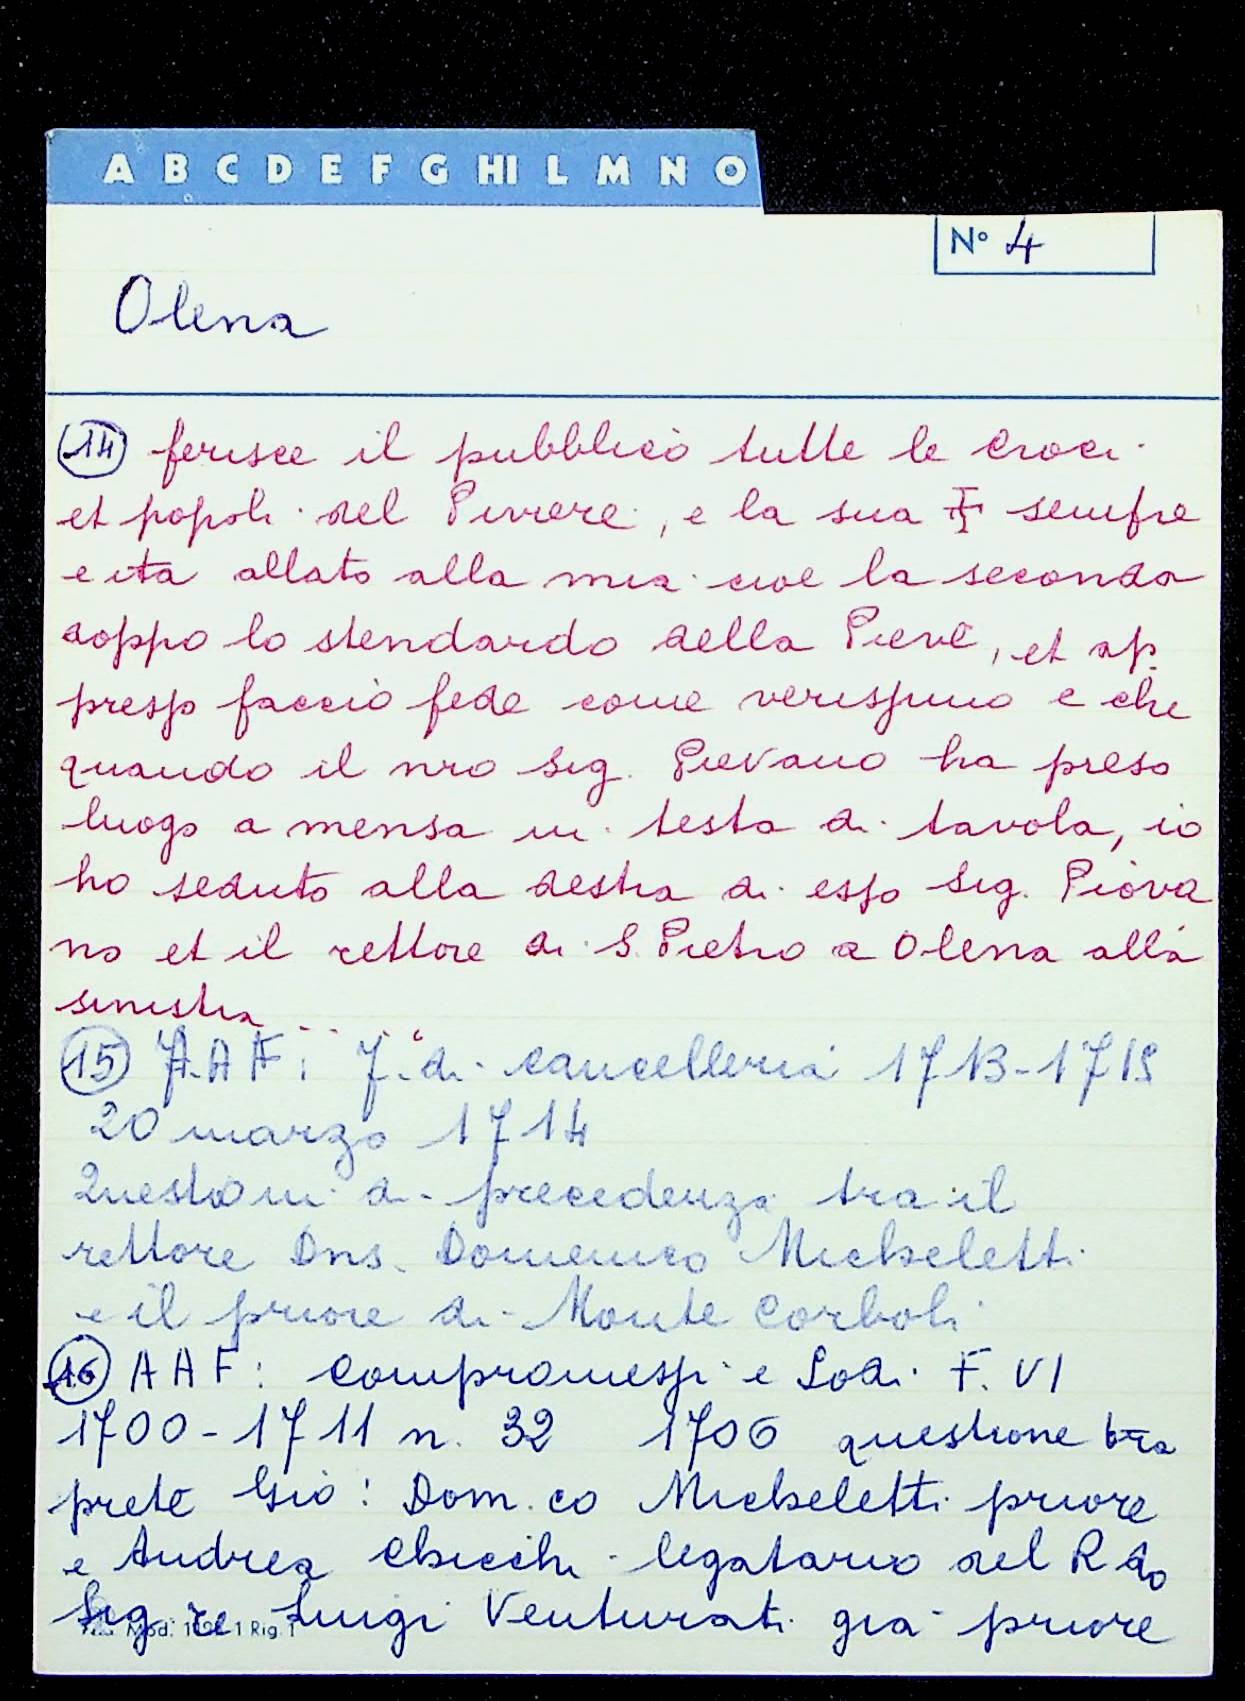 A B C D E F G HI L M N O
N° 4
Olena
14 ferisce il pubblico tutte le Croci
et popoli del Piviere, e la sua ✝ sempre
e ita allato alla mia cioè la seconda
doppo lo stendardo della Pieve, et ap
presso faccio fede come verissimo e che
quando il nro Sig. Pievano ha preso
luogo a mensa in testa di tavola, io
ho seduto alla destra di esso Sig. Piova
no et il rettore di S. Pietro a Olena alla
sinistra ... "
15 AAF: F. di cancelleria 1713-1719
20 marzo 1714
Questioni di precedenza tra il
rettore Dns. Domenico Micheletti
e il priore di Monte Corboli
16 AAF: Compromessi e Lodi F. VI
1700-1711 n. 32 1706 questione tra
prete Gio: Dom.co Micheletti priore
e Andrea Chicchi legatario del R do
Sig re Luigi Venturati già priore
Mod. 1 Rig. 1